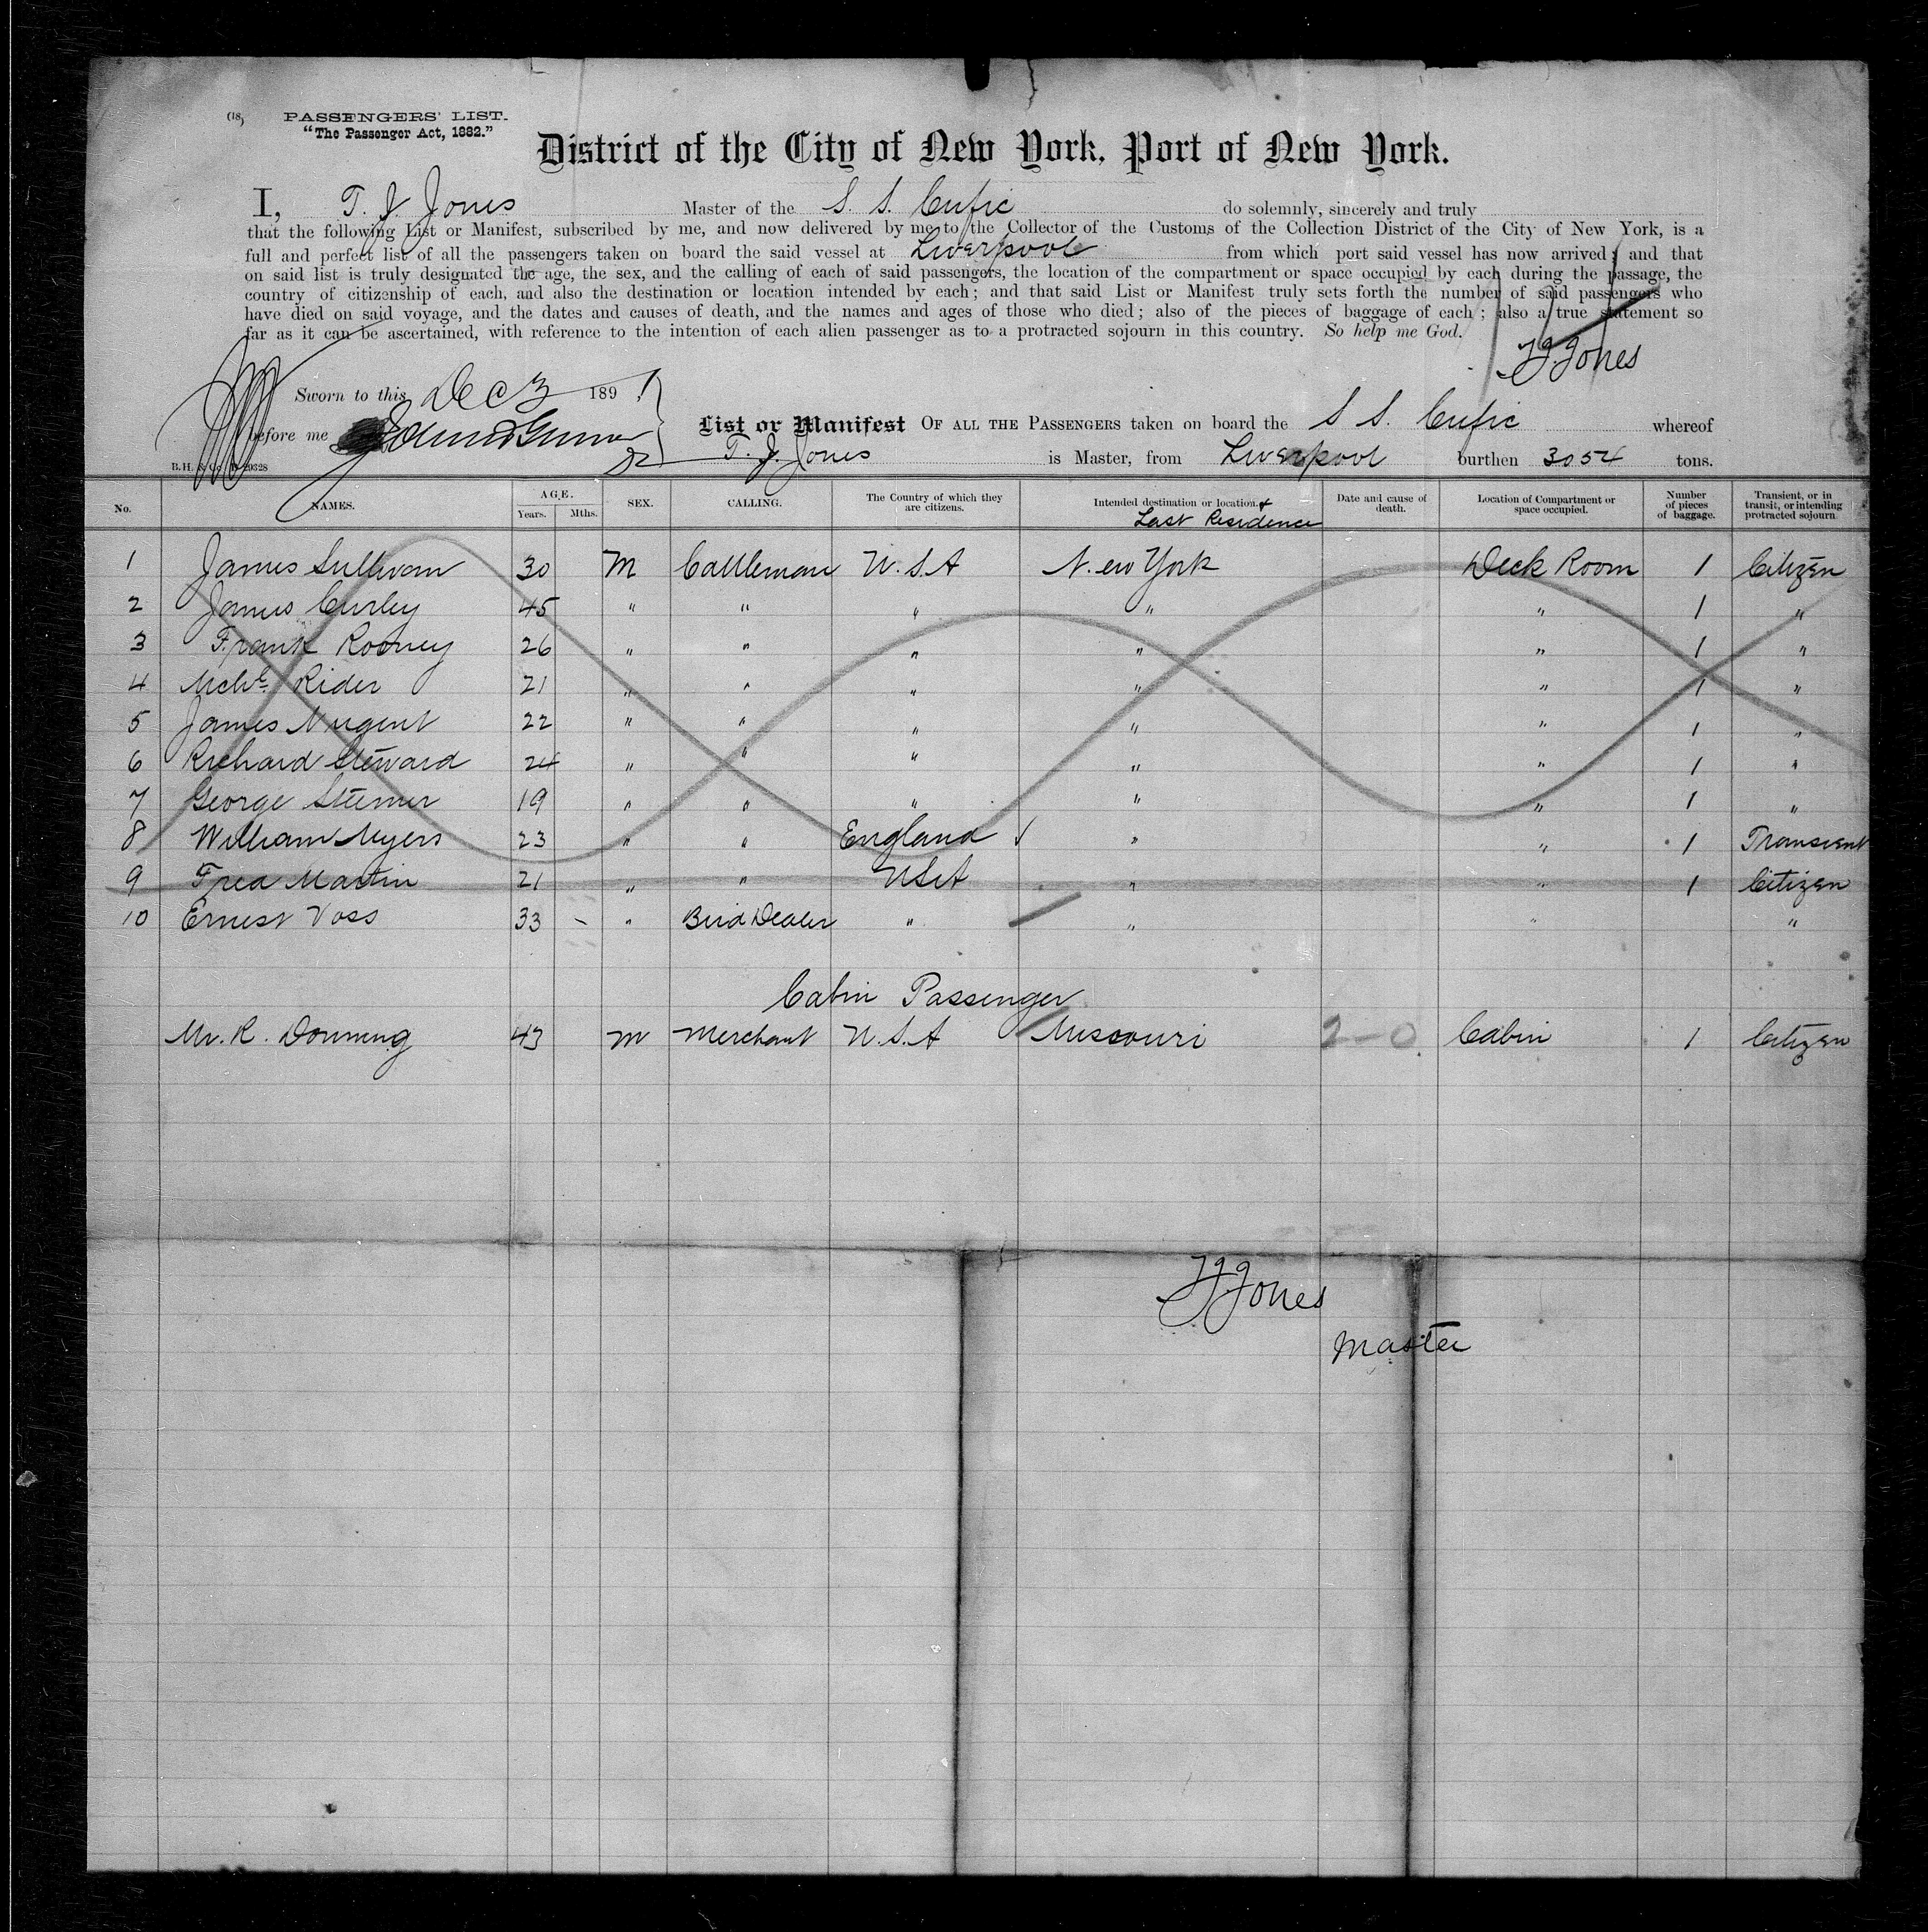 (18)
PASSENGERS' LIST.
"The Passenger Act, 1882."
District of the City of New York, Port of New York.
I, T. J. Jones Master of the S. S. Cufic do solemnly, sincerely and truly
that the following List or Manifest, subscribed by me, and now delivered by me to the Collector of the Customs of the Collection District of the City of New York, is a
full and perfect list of all the passengers taken on board the said vessel at Liverpool from which port said vessel has now arrived; and that
on said list is truly designated the age, the sex, and the calling of each of said passengers, the location of the compartment or space occupied by each during the passage, the
country of citizenship of each, and also the destination or location intended by each; and that said List or Manifest truly sets forth the number of said passengers who
have died on said voyage, and the dates and causes of death, and the names and ages of those who died; also of the pieces of baggage of each; also a true statement so
far as it can be ascertained, with reference to the intention of each alien passenger as to a protracted sojourn in this country. So help me God.
T.J. Jones
Sworn to this Dec 3 1891
before me
List or Manifest OF ALL THE PASSENGERS taken on board the S S. Cufic whereof
T. J. Jones is Master, from Liverpool burthen 3054 tons.
B. H. & Co. 29328
No. NAMES. AGE. Years. Mths. SEX. CALLING. The Country of which they are citizens. Intended destination or location. & Last Residence Date and cause of death. Location of Compartment or space occupied. Number of pieces of baggage. Transient, or in transit, or intending protracted sojourn.
1 James Sullivan 30 M Cattleman U.S.A New York Deck Room 1 Citizen
2 James Curley 45 " " " " " 1 "
3 Frank Rooney 26 " " " " " 1 "
4 Mchl Rider 21 " " " " " 1 "
5 James Nugent 22 " " " " " 1 "
6 Richard Steward 24 " " " " " 1 "
7 George Sturmer 19 " " " " " 1 "
8 William Myers 23 " " England ✓ " " 1 Transient
9 Fred Martin 21 " " USA " " 1 Citizen
10 Ernest Voss 33 - " Bird Dealer " " " "
Cabin Passenger
Mr. R. Downing 43 M Merchant U.S.A Missouri 2-0 Cabin 1 Citizen
T.J. Jones
Master